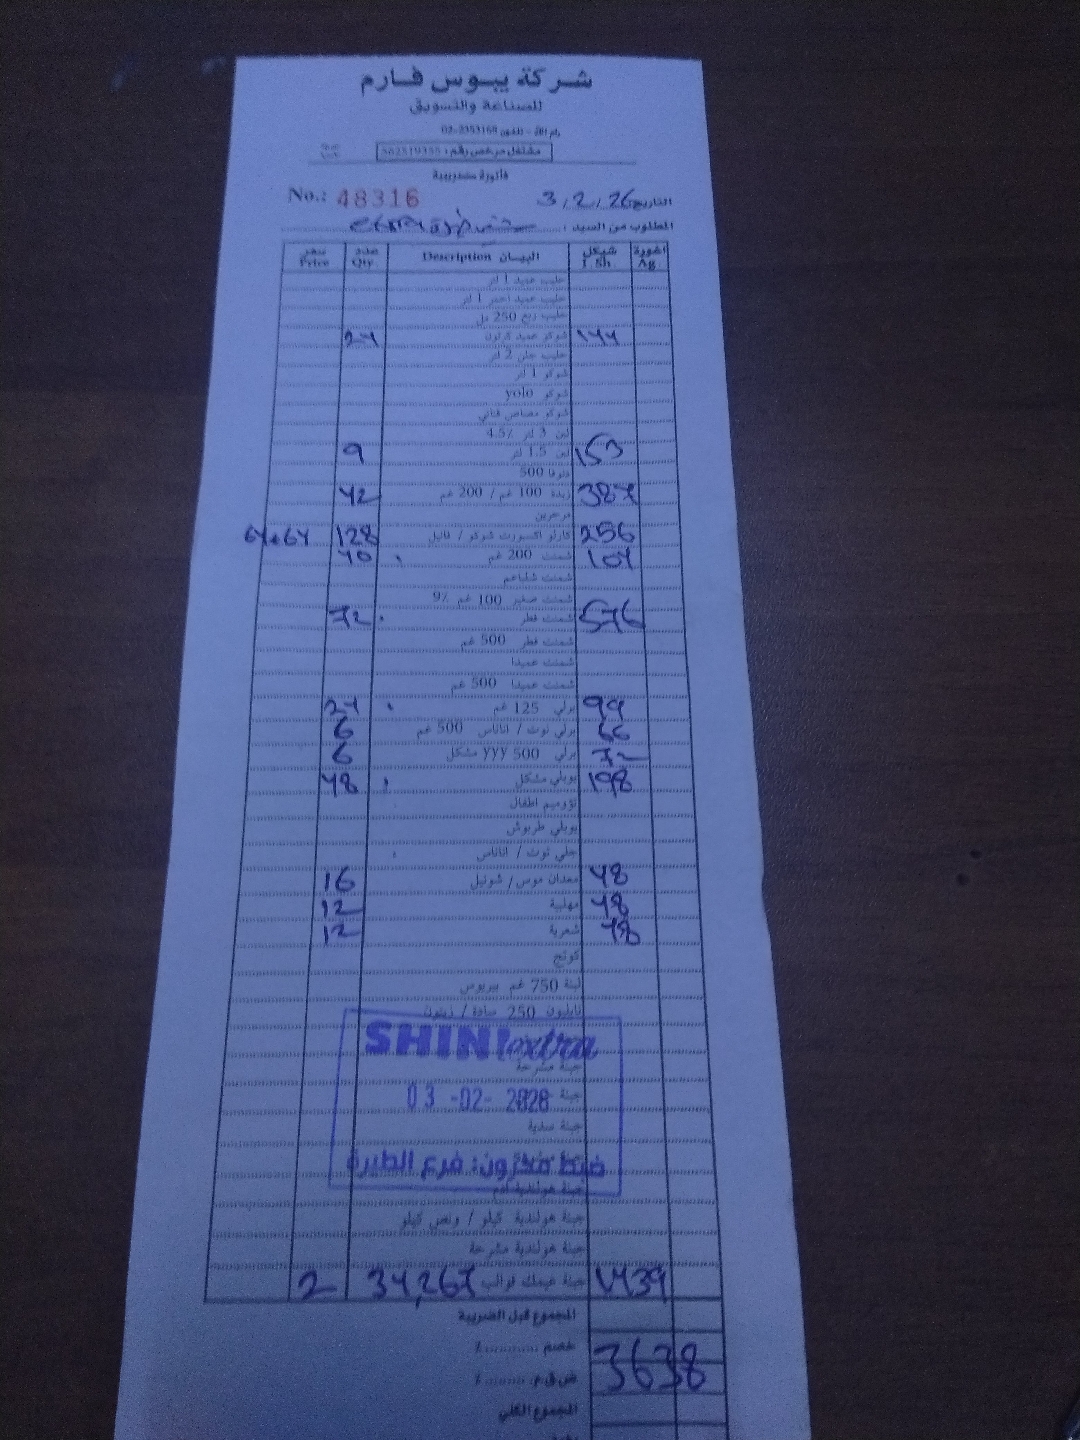 شركة يبوس فارم
للصناعة والتسويق
رام الله - تلفون 02-2353168
مشتغل مرخص رقم: 562519355
فاتورة ضريبية
No.: 48316 التاريخ 3/2/26
المطلوب من السيد:
سعر Price عدد Qty البيان Description شيكل I. Sh. اغورة Ag.
حليب عميد 1 لتر
حليب عميد احمر 1 لتر
حليب ربع 250 مل
24 شوكو عميد كرتون 144
حليب جلي 2 لتر
شوكو 1 لتر
شوكو yolo
شوكو مصاص
لبن 3 لتر 4.5٪
9 لبن 1.5 لتر 153
500
42 زبدة 100 غم / 200 غم 387
مرجرين
64+64 128 كارلو اكسورت شوكو / فانيل 256
40 شمنت 200 غم 104
شمنت
شمنت صغير 100 غم 9٪
72 شمنت قطر 576
شمنت قطر 500 غم
شمنت عميدا
شمنت عميدا 500 غم
24 برلي 125 غم 99
6 برلي توت / اناناس 500 غم 66
6 برلي 500 yyy مشكل 72
48 يوبلي مشكل 198
اطفال
يوبلي طربوش
جلي توت / اناناس
16 معدان موس / شوتيل 48
12 مهلبية 48
12 شعرية 48
كوتج
لبنة 750 غم بيريوس
نابليون 250 سادة / زيتون
SHINI extra
جبنة مشرحة
جبنة
03 -02- 2026
جبنة
ضبط مخزون: فرع الطيرة
جبنة هولندية ادم
جبنة هولندية كيلو / ونص كيلو
جبنة هولندية مشرحة
2 34,267 جبنة عيمك قوالب 1439
المجموع قبل الضريبة
خصم ............ ٪ 3638
ض.ق.م. ......... ٪
المجموع الكلي